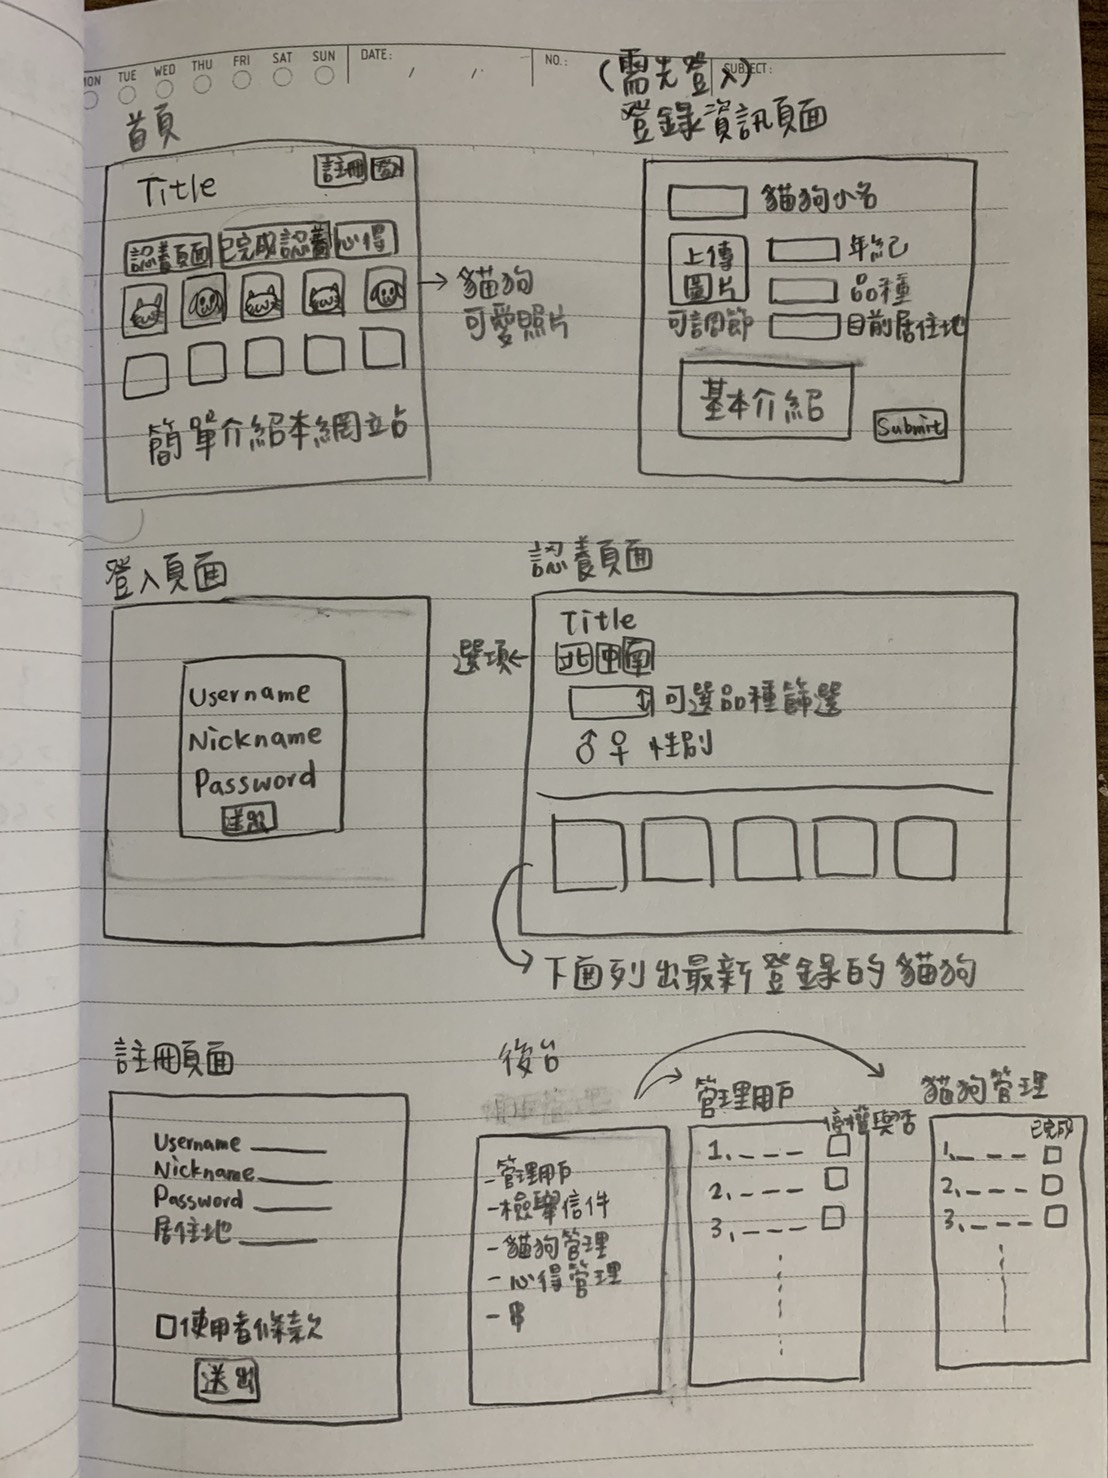 MON TUE WED THU FRI SAT SUN DATE: / / NO.: SUBJECT:
首頁
Title
註冊 登入
認養頁面 已完成認養 心得
貓狗
可愛照片
簡單介紹本網站
(需先登入)
登錄資訊頁面
貓狗小名
上傳
圖片
可調節
年紀
品種
目前居住地
基本介紹
Submit
登入頁面
Username
Nickname
Password
送出
認養頁面
Title
選項
北 中 南
可選品種篩選
♂ ♀ 性別
下面列出最新登錄的貓狗
註冊頁面
Username
Nickname
Password
居住地
使用者條款
送出
後台
-管理用戶
-檢舉信件
-貓狗管理
-心得管理
管理用戶
停權與否
1.
2.
3.
貓狗管理
已完成
1.
2.
3.